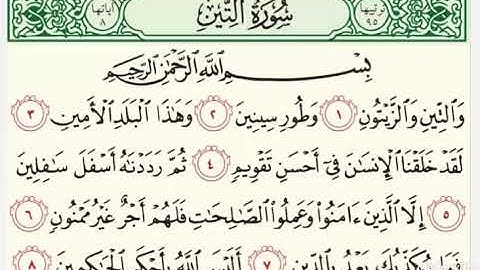 ترتيبها ٩٥ سُورَةُ التِّينِ آياتها ٨
بِسْمِ اللَّهِ الرَّحْمَٰنِ الرَّحِيمِ
وَالتِّينِ وَالزَّيْتُونِ ١ وَطُورِ سِينِينَ ٢ وَهَٰذَا الْبَلَدِ الْأَمِينِ ٣
لَقَدْ خَلَقْنَا الْإِنسَانَ فِي أَحْسَنِ تَقْوِيمٍ ٤ ثُمَّ رَدَدْنَاهُ أَسْفَلَ سَافِلِينَ
٥ إِلَّا الَّذِينَ ءَامَنُوا وَعَمِلُوا الصَّالِحَاتِ فَلَهُمْ أَجْرٌ غَيْرُ مَمْنُونٍ ٦
فَمَا يُكَذِّبُكَ بَعْدُ بِالدِّينِ ٧ أَلَيْسَ اللَّهُ بِأَحْكَمِ الْحَاكِمِينَ ٨